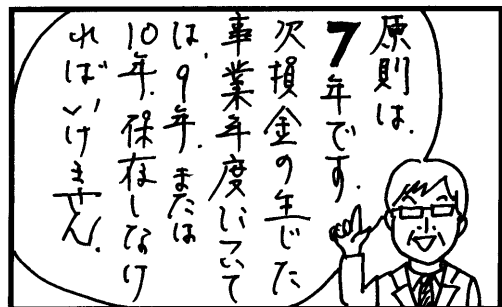 原則は、
7年です。
欠損金の生じた
事業年度について
は、9年、または
10年、保存しなけ
ればいけません。